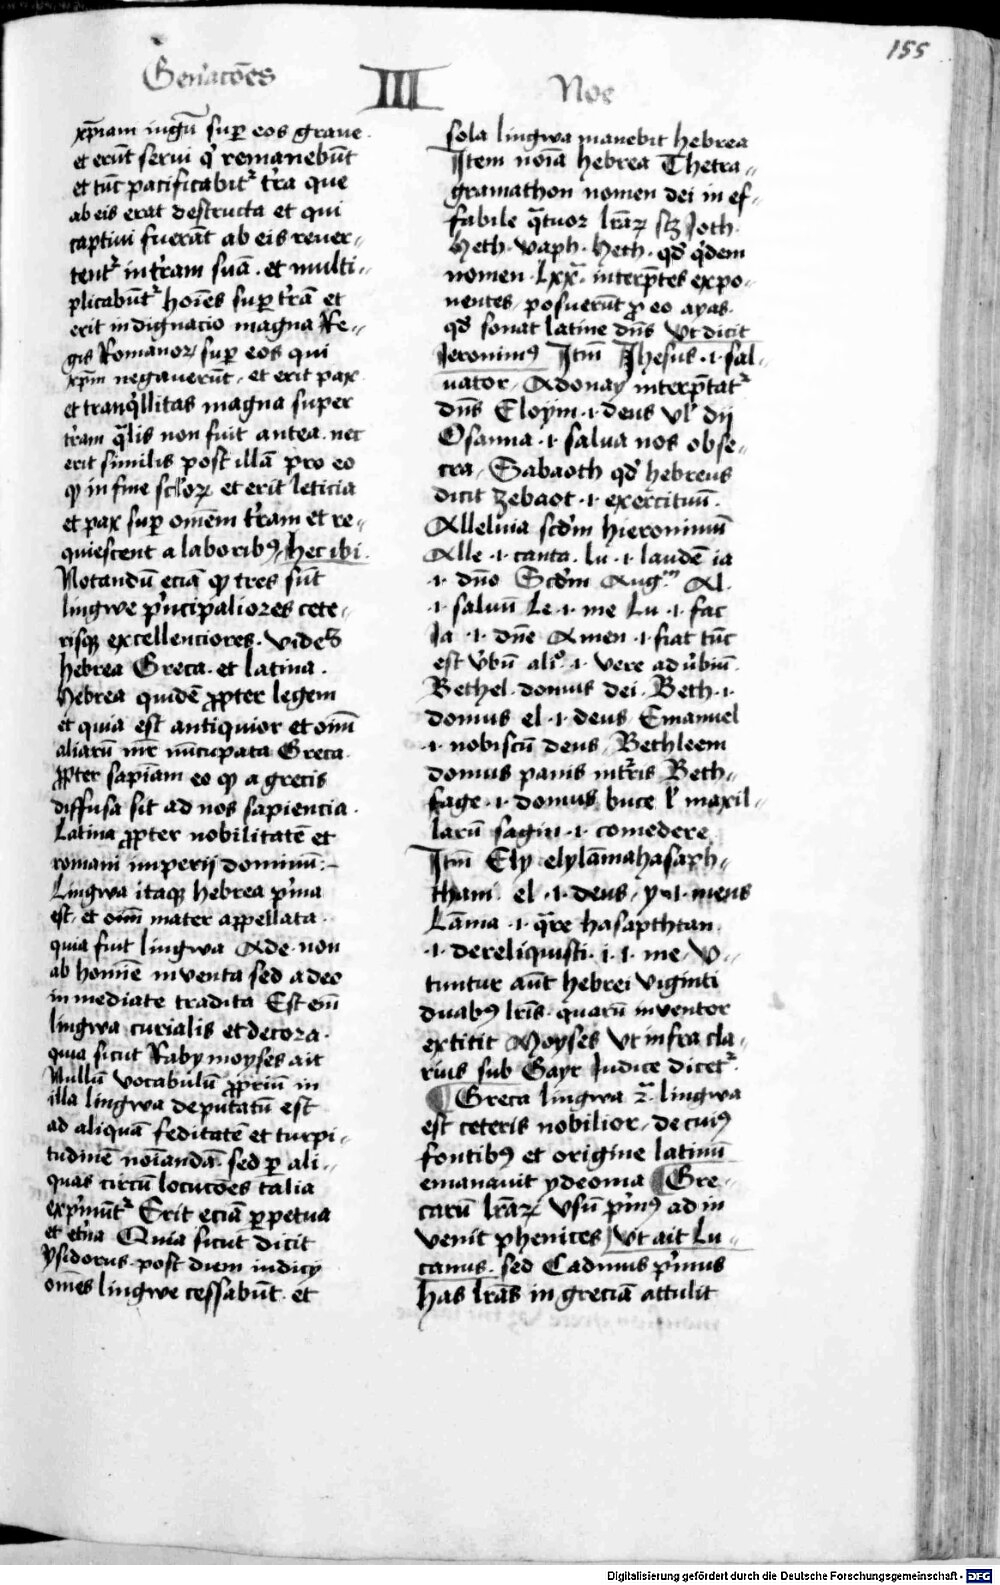 155
Gen'acōes III Noe
xp̄iam iugū sup eos graue
et erūt serui q' remanebūt
et tūc pacificabit' t'ra que
ab eis erat destructa et qui
captiui fuerāt ab eis reuer-
tent' in t'ram suā. et multi-
plicabūt' hoīes sup t'rā et
erit indignacio magna Re-
gis Romanoꝝ sup eos qui
xp̄m negauerūt, et erit pax
et tranq'llitas magna super
t'ram q̄lis non fuit antea. nec
erit similis post illā pro eo
ꝙ in fine sc'loꝝ et erit leticia
et pax sup om̄em t'ram et re-
quiescent a laboribꝰ, hec ibi.
Notandū eciā ꝙ tres sūt
lingwe p'ncipaliores cete-
risqꝫ excellenciores. vides
hebrea Greca. et latina.
hebrea quidē ꝓpter legem
et quia est antiquior et oīm
aliarū mr̄ nūcupata Greca
ꝓpter sapiam̄ eo ꝙ a grecis
diffusa sit ad nos sapiencia.
Latina ꝓpter nobilitatē et
romani imperij dominiū:-
Lingwa itaqꝫ hebrea p'ma
est, et oīm mater appellata.
quia fuit lingwa Ade. non
ab homīe inventa sed a deo
inmediate tradita Est enī
lingwa curialis et decora.
quia sicut Raby moyses ait
Nullū vocabulū ꝓpriū in
illa lingwa deputatū est
ad aliquā feditatē et turpi-
tudinē noīandā. sed ꝑ ali-
quas circū locucōes talia
exp'mūt' Erit eciā ꝑpetua
et et'na Quia sicut dicit
ysidorus. post diem iudicy
om̄es lingwe cessabūt. et
sola lingwa manebit hebrea
Item noīa hebrea Thetra-
gramathon nomen dei in ef-
fabile q̄tuor lr̄aꝝ scꝫ Joth.
heth. vaph. heth. qd' q'dem
nomen. Lxx. interp̄tes expo-
nentes, posuerūt ꝓ eo ayas.
qd' sonat latine dn̄s vt dicit
Jeronimꝰ Itm̄ Jhesus .i. sal-
uator, Adonay interp̄tat'
dn̄s Eloym .i. deus vl' dij
Osanna .i. salua nos obse-
cra, Sabaoth qd' hebreus
dicit zebaot .i. exercituū.
Alleluia scd'm hieronimū
Alle .i. canta. lu .i. laudē ia
.i. dn̄o Scd'm Aug.m Al.
.i. saluū Le .i. me Lu .i. fac
Ja .i. dn̄e Amen .i. fiat tūc
est v'bū ali° .i. vere aduʼbiū.
Bethel. domus dei. Beth .i.
domus el .i. deus Emanuel
.i. nobiscū deus, Bethleem
domus panis int'ris Beth-
fage .i. domus buce l' maxil-
larū sagin .i. comedere
Itm̄ Ely elylāmahasaph-
thani. el .i. deus, y .i. meus
Lāma .i. q̄re hasapthtan.
.i. dereliquisti. i. i. me, v-
tuntur aūt hebrei viginti
duabꝰ lr̄is. quarū inventor
extitit Moyses vt infra cla-
rius sub Gayr Judice dicet'.
¶ Greca lingwa 2.a lingwa
est ceteris nobilior, de cuiꝰ
fontibꝰ et origine latinū
emanauit ydeoma ¶ Gre-
carū lr̄aꝝ vsū p'mꝰ ad in
venit phenices vt ait Lu-
canus. sed Cadmus p'mus
has lr̄as in greciā attulit
Digitalisierung gefördert durch die Deutsche Forschungsgemeinschaft - DFG